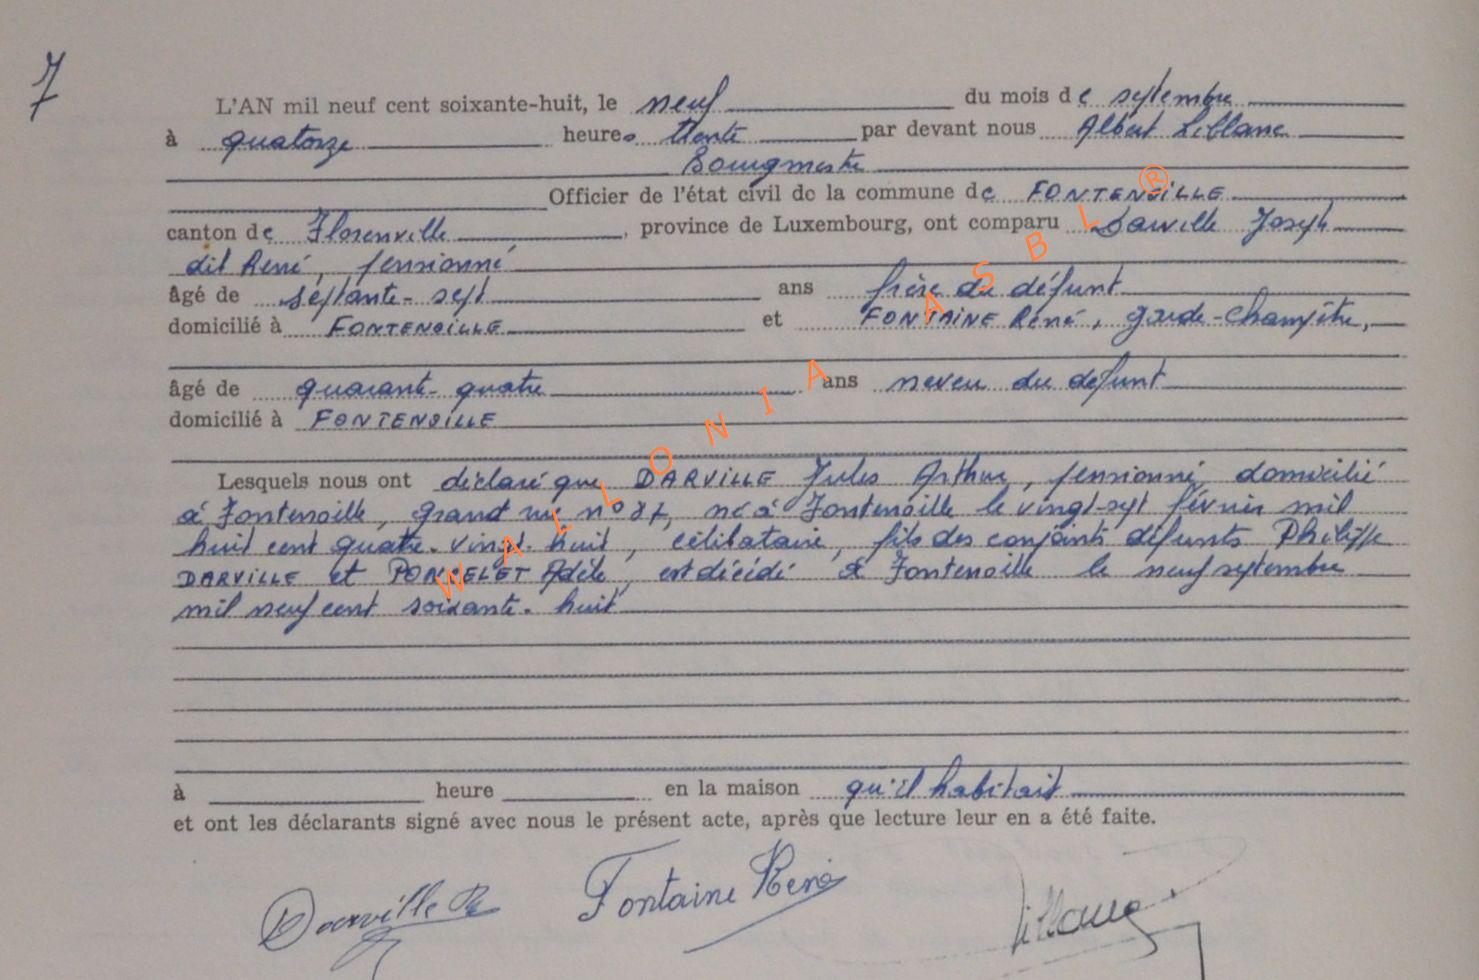 7
L'AN mil neuf cent soixante-huit, le neuf du mois de septembre
à quatorze heures trente par devant nous Albert Leblanc
Bourgmestre
Officier de l'état civil de la commune de FONTENOILLE
canton de Florenville, province de Luxembourg, ont comparu Darville Joseph
dit René, pensionné
âgé de septante-sept ans frère du défunt
domicilié à FONTENOILLE et FONTAINE René, garde-champêtre,
âgé de quarante-quatre ans neveu du défunt
domicilié à FONTENOILLE
Lesquels nous ont déclaré que DARVILLE Jules Arthur, pensionné, domicilié
à Fontenoille, grand rue n° 87, né à Fontenoille le vingt-sept février mil
huit cent quatre-vingt-huit, célibataire, fils des conjoints défunts Philippe
DARVILLE et PONCELET Adèle, est décédé à Fontenoille le neuf septembre
mil neuf cent soixante-huit
à heure en la maison qu'il habitait
et ont les déclarants signé avec nous le présent acte, après que lecture leur en a été faite.
Darville R Fontaine René
WALLONIA ASBL ®